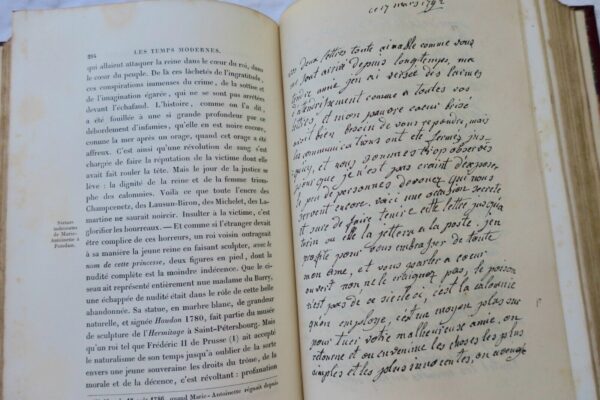 294
LES TEMPS MODERNES.
qui allaient attaquer la reine dans le cœur du roi, dans
le cœur du peuple. De là ces lâchetés de l'ingratitude,
ces conspirations immenses du crime, de la sottise et
de l'imagination égarée, qui ne se sont pas arrêtées
devant l'échafaud. L'histoire, comme on l'a dit,
a été fouillée à une si grande profondeur par ce
débordement d'infamies, qu'elle en est noire encore,
comme la mer après un orage, quand cet orage a été
affreux. C'est ainsi qu'une révolution de sang s'est
chargée de faire la réputation de la victime dont elle
avait fait rouler la tête. Mais le jour de la justice se
lève : la dignité de la reine et de la femme triom-
phe des calomnies. Voilà ce que toute l'encre des
Champcenetz, des Lauzun-Biron, des Michelet, des La-
martine ne saurait noircir. Insulter à la victime, c'est
glorifier les bourreaux. — Et comme si l'étranger devait
être complice de ces horreurs, un roi voisin outrageait
à sa manière la jeune reine en faisant sculpter, avec le
nom de cette princesse, deux figures en pied, dont la
nudité complète est la moindre indécence. Que le ci-
seau ait représenté entièrement nue madame du Barry,
une échappée de nudité était dans le rôle de cette belle
abandonnée. Sa statue, en marbre blanc, de grandeur
naturelle, et signée Houdon 1780, fait partie du musée
de sculpture de l'Hermitage à Saint-Pétersbourg. Mais
qu'un roi tel que Frédéric II de Prusse (1) ait accepté
le naturalisme de son temps jusqu'à oublier de la sorte
envers une jeune souveraine les droits du trône, de la
morale et de la décence, c'est révoltant : profanation
Statues
indécentes
de Marie-
Antoinette à
Potsdam.
1786, quand Marie-Antoinette régnait depuis
ce 17 mars 1792
vos deux lettres toute aimable comme vous
sont arrivé depuis longtemps, ma
chere ame, jen ai versée des larmes
d'attendrissement comme a toutes vos
lettres, et mon pauvre coeur brisé
aussi bien besoin de vous repondre, mais
les communications ont eté fermés jus-
quici, et nous sommes trop observés
pour que je n'est pas craint d'exposer
le peu de personnes devouez qui nous
servent encore. vaici une occasion secrete
et sure de faire tenir cette lettre jusqua
turin ou elle la jettera a la poste. jen
profite pour vous embrasser de toute
mon ame, et vous parler a coeur
ouvert non, ne le craignez pas, le poison
n'est pas de ce siecle ci, c'est la calomnie
qu'on employe, c'est un moyen plus sur
pour tuer votre malheureuse amie. on
retourne et on envenime les choses les plus
simples et les plus innocentes, on aveugle